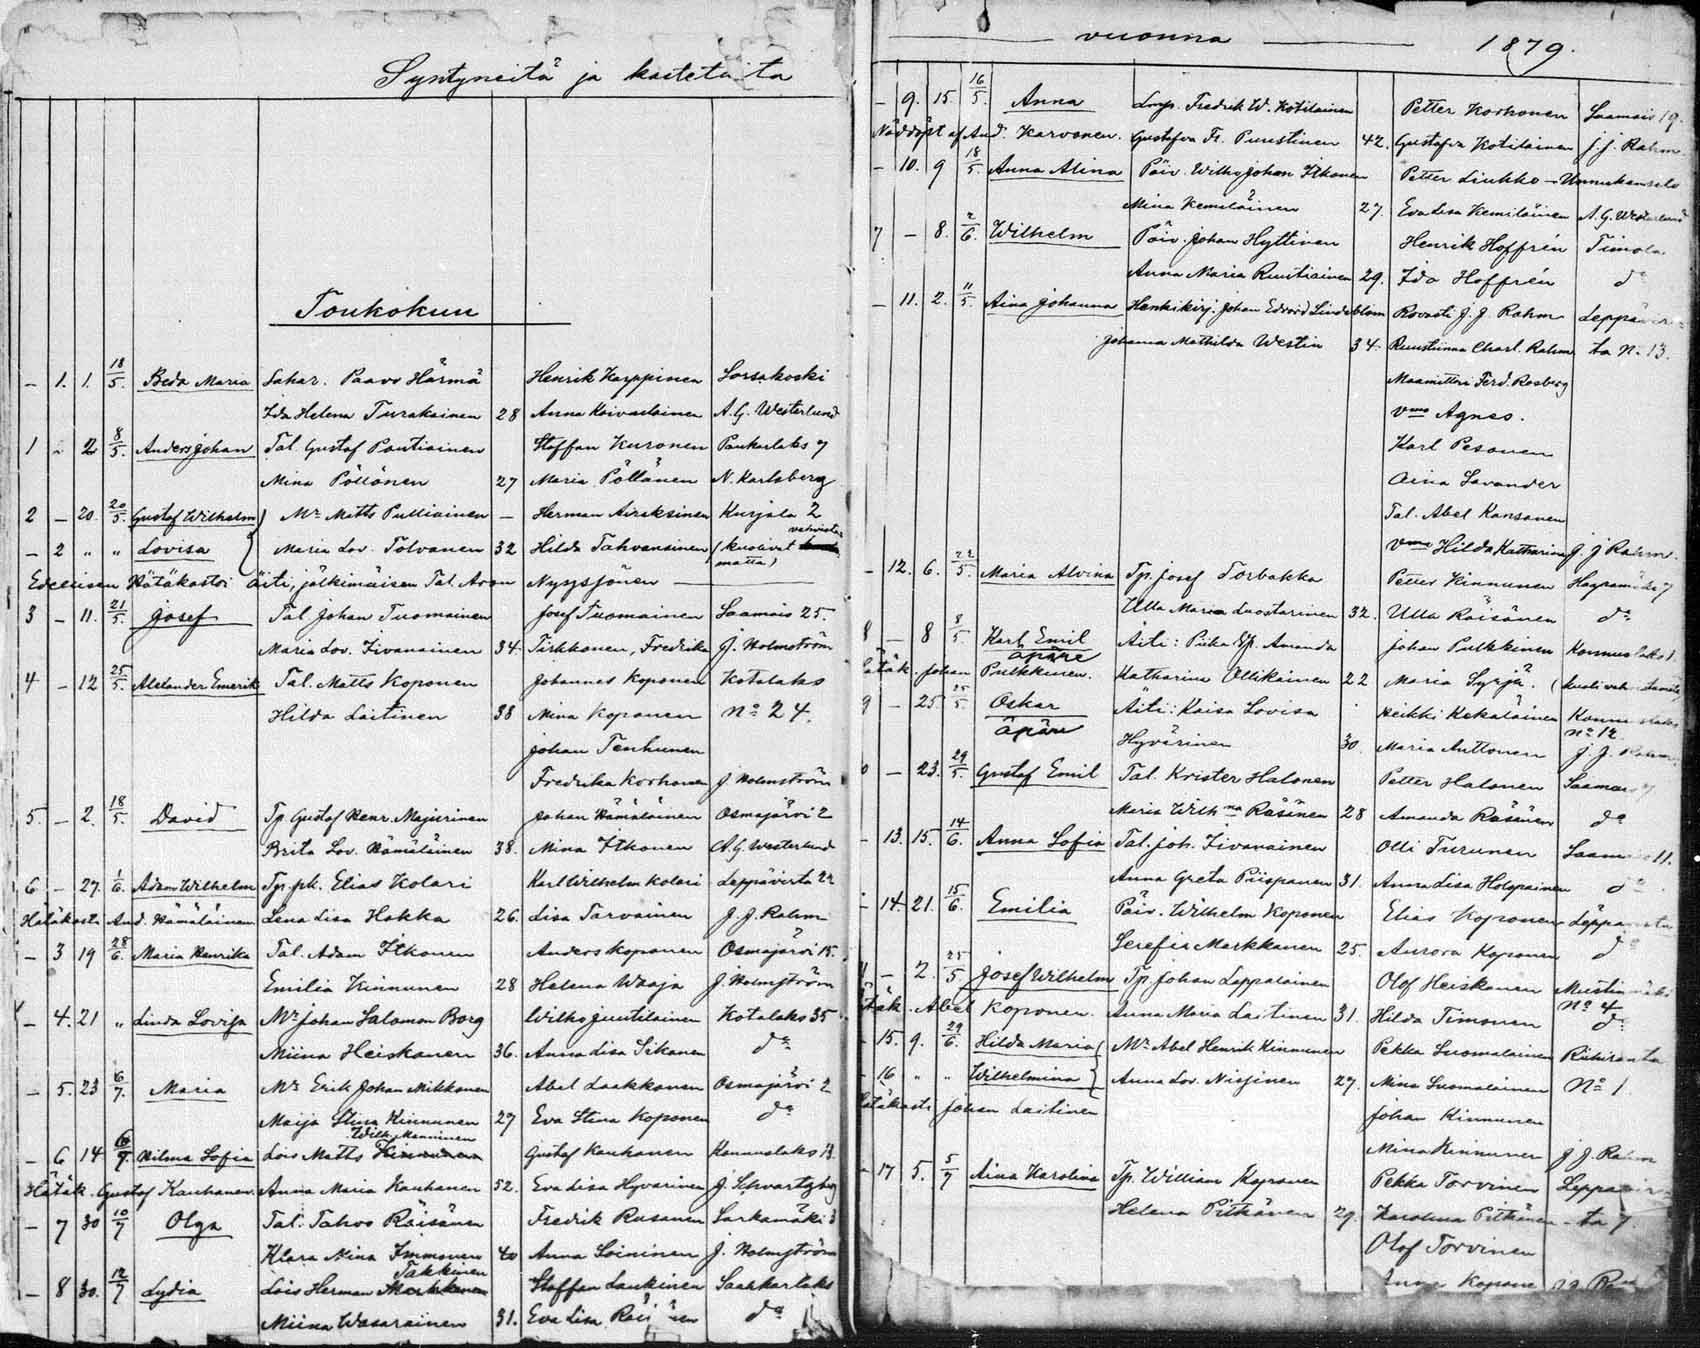 Syntyneitä ja kastetuita
Toukokuu
- 1. 1. 18/5 Beda Maria Sahar. Paavo Härmä Henrik Karppinen Sorsakoski
Ida Helena Turakainen 28 Anna Koivulainen A. G. Westerlund
1 - 2 8/5. Anders Johan Tal. Gustaf Pantiainen Staffan Kuronen Paukarlaks 7
Mina Pöllönen 27 Maria Pöllänen N. Karlsberg
2 - 20. 20/5. Gustaf Wilhelm Mr Matts Pulliainen - Herman Airaksinen Kurjala 2
- 2 " " Lovisa Maria Lov. Tolvanen 32 Hilda Tahvanainen (kuolivat vahvistamatta)
Edellisen Hätäkastoi äiti, jälkimäisen Tal. Aron Nyyssönen
3 - 11. 21/5. Josef Tal. Johan Tuomainen Josef Tuomainen Saamais 25.
Maria Lov. Iivanainen 34. Tirkkonen, Fredrika J. Holmström
4 - 12 25/5. Alexander Emerik Tal. Matts Koponen Johannes Koponen Kotalaks
Hilda Laitinen 38 Mina Koponen No 24.
Johan Tenhunen
Fredrika Korhonen J. Holmström
5. - 2. 18/5. David Tp. Gustaf Henr. Majurinen Johan Hämäläinen Osmajärvi 2
Brita Lov. Hämäläinen 38. Mina Itkonen A. G. Westerlund
6 - 27. 1/6. Adam Wilhelm Tp. pk. Elias Kolari Karl Wilhelm Kolari Leppävirta 22
Hätäkasta And. Hämäläinen Lena Lisa Hakka 26. Lisa Tarvainen J. J. Rahm
- 3 19 28/6. Maria Henrika Tal. Adam Itkonen Anders Koponen Osmajärvi 15.
Emilia Kinnunen 28 Helena Waaja J. Holmström
- 4. 21 " Linda Lovisa Mr Johan Salomon Borg Wilho Juntilainen Kotalaks 35
Miina Heiskanen 36. Anna Lisa Sikanen do
- 5. 23 6/7. Maria Mr Erik Johan Mikkonen Abel Laakkonen Osmajärvi 2
Maija Stina Kinnunen 27 Eva Stina Koponen do
Wilh. Manninen
- 6 14 6/7. Hilma Sofia Lois Matts Kinnunen Gustaf Kauhanen Konnuslaks 13.
Hätäk. Gustaf Kauhanen. Anna Maria Kauhanen 52. Eva Lisa Hyvärinen J. Schvartzberg
- 7 30 10/7 Olga Tal. Tahvo Räisänen Fredrik Rusanen Sarkamäki 3
Klara Mina Immonen 40 Anna Soininen J. Holmström
Takkinen
- 8 30. 12/7 Lydia Lois Herman Markkanen Staffan Laukinen Saahkarlaks
Miina Wasarainen 31. Eva Lisa do
vuonna 1879.
- 9. 15. 16/5. Anna Lmp. Fredrik W. Kotilainen Petter Korhonen Saamais 19.
Nöddöpt af And. Karvonen. Gustafva Fr. Puustinen 42. Gustafva Kotilainen J. J. Rahm.
- 10. 9 18/5. Anna Alina Päiv. Wilho Johan Itkonen Petter Liukko - Unnukansalo
Mina Kemiläinen 27. Eva Lisa Kemiläinen A. G. Westerlund
7 - 8. 2/6. Wilhelm Päiv. Johan Hyttinen Henrik Hoffrén Timola
Anna Maria Ruustiainen 29. Ida Hoffrén do
- 11. 2. 11/5. Aina Johanna Henkikirj. Johan Edvard Lindeblom Rovasti J. J. Rahm Leppävir-
Johanna Mathilda Westin 34. Ruustinna Charl. Rahm ta No 13.
Maamittari Ferd. Rosberg
Vmo Agnes.
Karl Pesonen
Aina Savander
Tal. Abel Kansanen
Vmo Hilda Katharina J. J. Rahm.
- 12. 6. 22/5. Maria Alvina Tp. Josef Torbakka Petter Kinnunen 7
Ulla Maria Luostarinen 32. Ulla Räisänen do
8 - 8 8/5. Karl Emil Äiti: Piika Amanda Johan Pulkkinen Konnuslaks 1.
äpäre
Hätäk Johan Pulkkinen. Katharina Ollikainen 22 Maria Syrjä.
9 - 25 25/5 Oskar Äiti: Kaisa Lovisa Heikki Kekäläinen Konnuslaks
äpäre No 12
Hyvärinen 30. Maria Anttonen J. J. Rahm.
- 23. 29/5. Gustaf Emil Tal. Krister Halonen Petter Halonen Saamais 7
Maria Wilhna Räsänen 28 Amanda Räsänen do
- 13. 15. 14/6. Anna Sofia Tal. Joh. Iivanainen Olli Turunen Saamais 11.
Anna Greta Piispanen 31. Anna Lisa Holopainen do
- 14. 21. 15/6. Emilia Päiv. Wilhelm Koponen Elias Koponen Leppävirta
Serefia Markkanen 25. Aurora Koponen do
- 2. 25/5 Josef Wilhelm Tp. Johan Leppalainen Olof Heiskanen Mustinmäki
No 4
Hätäk. Abel Koponen. Anna Maria Laitinen 31. Hilda Timonen do
- 15. 9. 29/6. Hilda Maria Mr. Abel Henrik Kinnunen Pekka Suomalainen Riihiranta
- 16 " " Wilhelmina Anna Lov. Nissinen 27. Mina Suomalainen No 1.
Hätäkasti Johan Laitinen Johan Kinnunen
Mina Kinnunen J. J. Rahm
- 17 5. 5/7 Aina Karolina Tp. William Koponen Pekka Torvinen Leppävir-
Helena Pitkänen 29. Karolina Pitkänen - ta 7.
Olof Torvinen